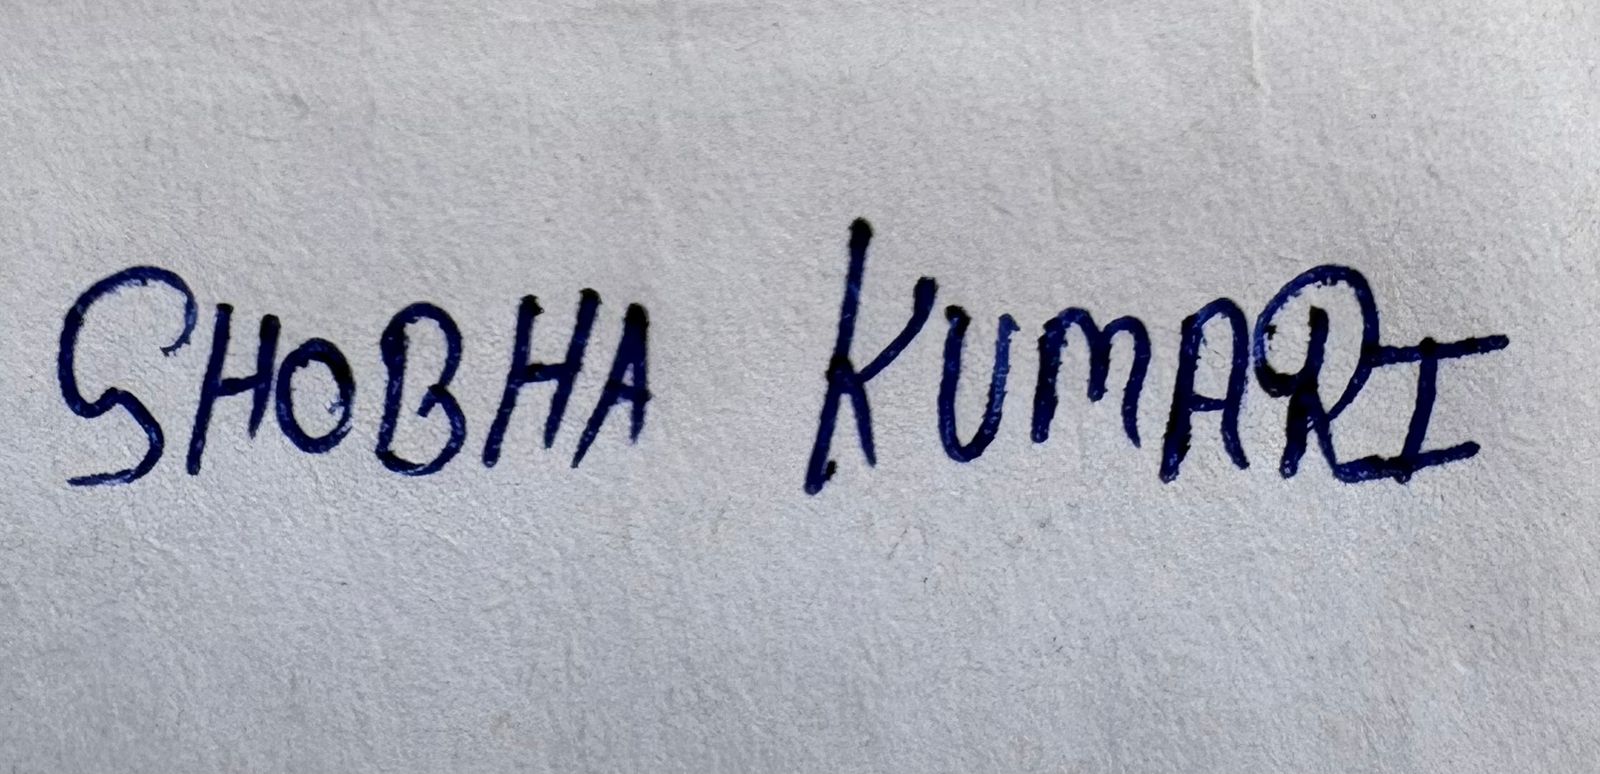 SHOBHA KUMARI